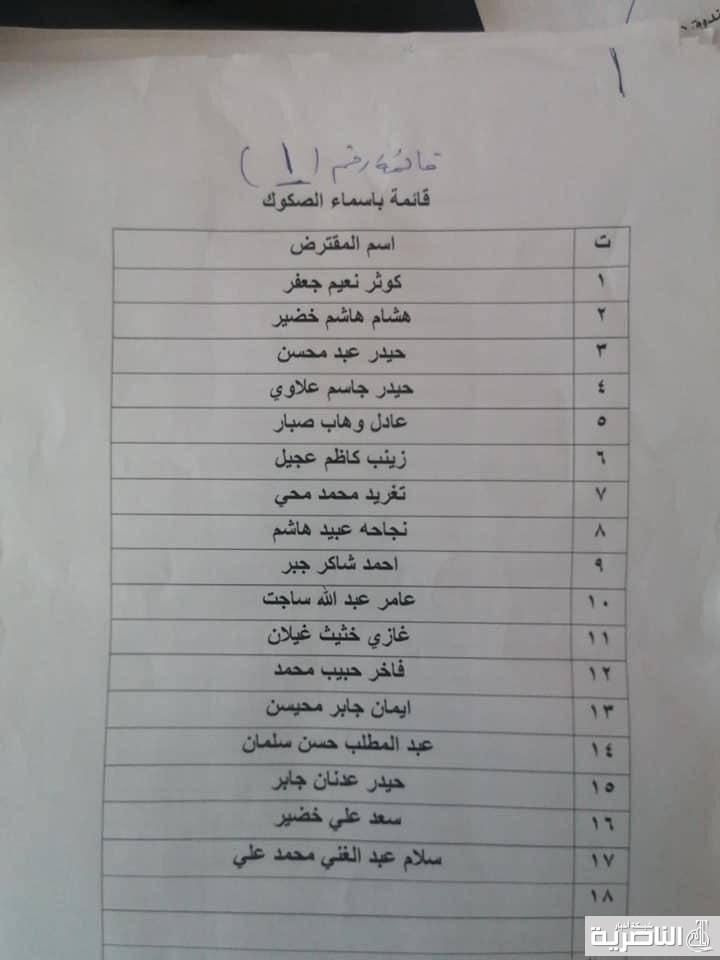 ١
قائمة رقم (١)
قائمة باسماء الصكوك
ت اسم المقترض
١ كوثر نعيم جعفر
٢ هشام هاشم خضير
٣ حيدر عبد محسن
٤ حيدر جاسم علاوي
٥ عادل وهاب صبار
٦ زينب كاظم عجيل
٧ تغريد محمد محي
٨ نجاحه عبيد هاشم
٩ احمد شاكر جبر
١٠ عامر عبد الله ساجت
١١ غازي خثيث غيلان
١٢ فاخر حبيب محمد
١٣ ايمان جابر محيسن
١٤ عبد المطلب حسن سلمان
١٥ حيدر عدنان جابر
١٦ سعد علي خضير
١٧ سلام عبد الغني محمد علي
١٨
شبكة اخبار
الناصرية